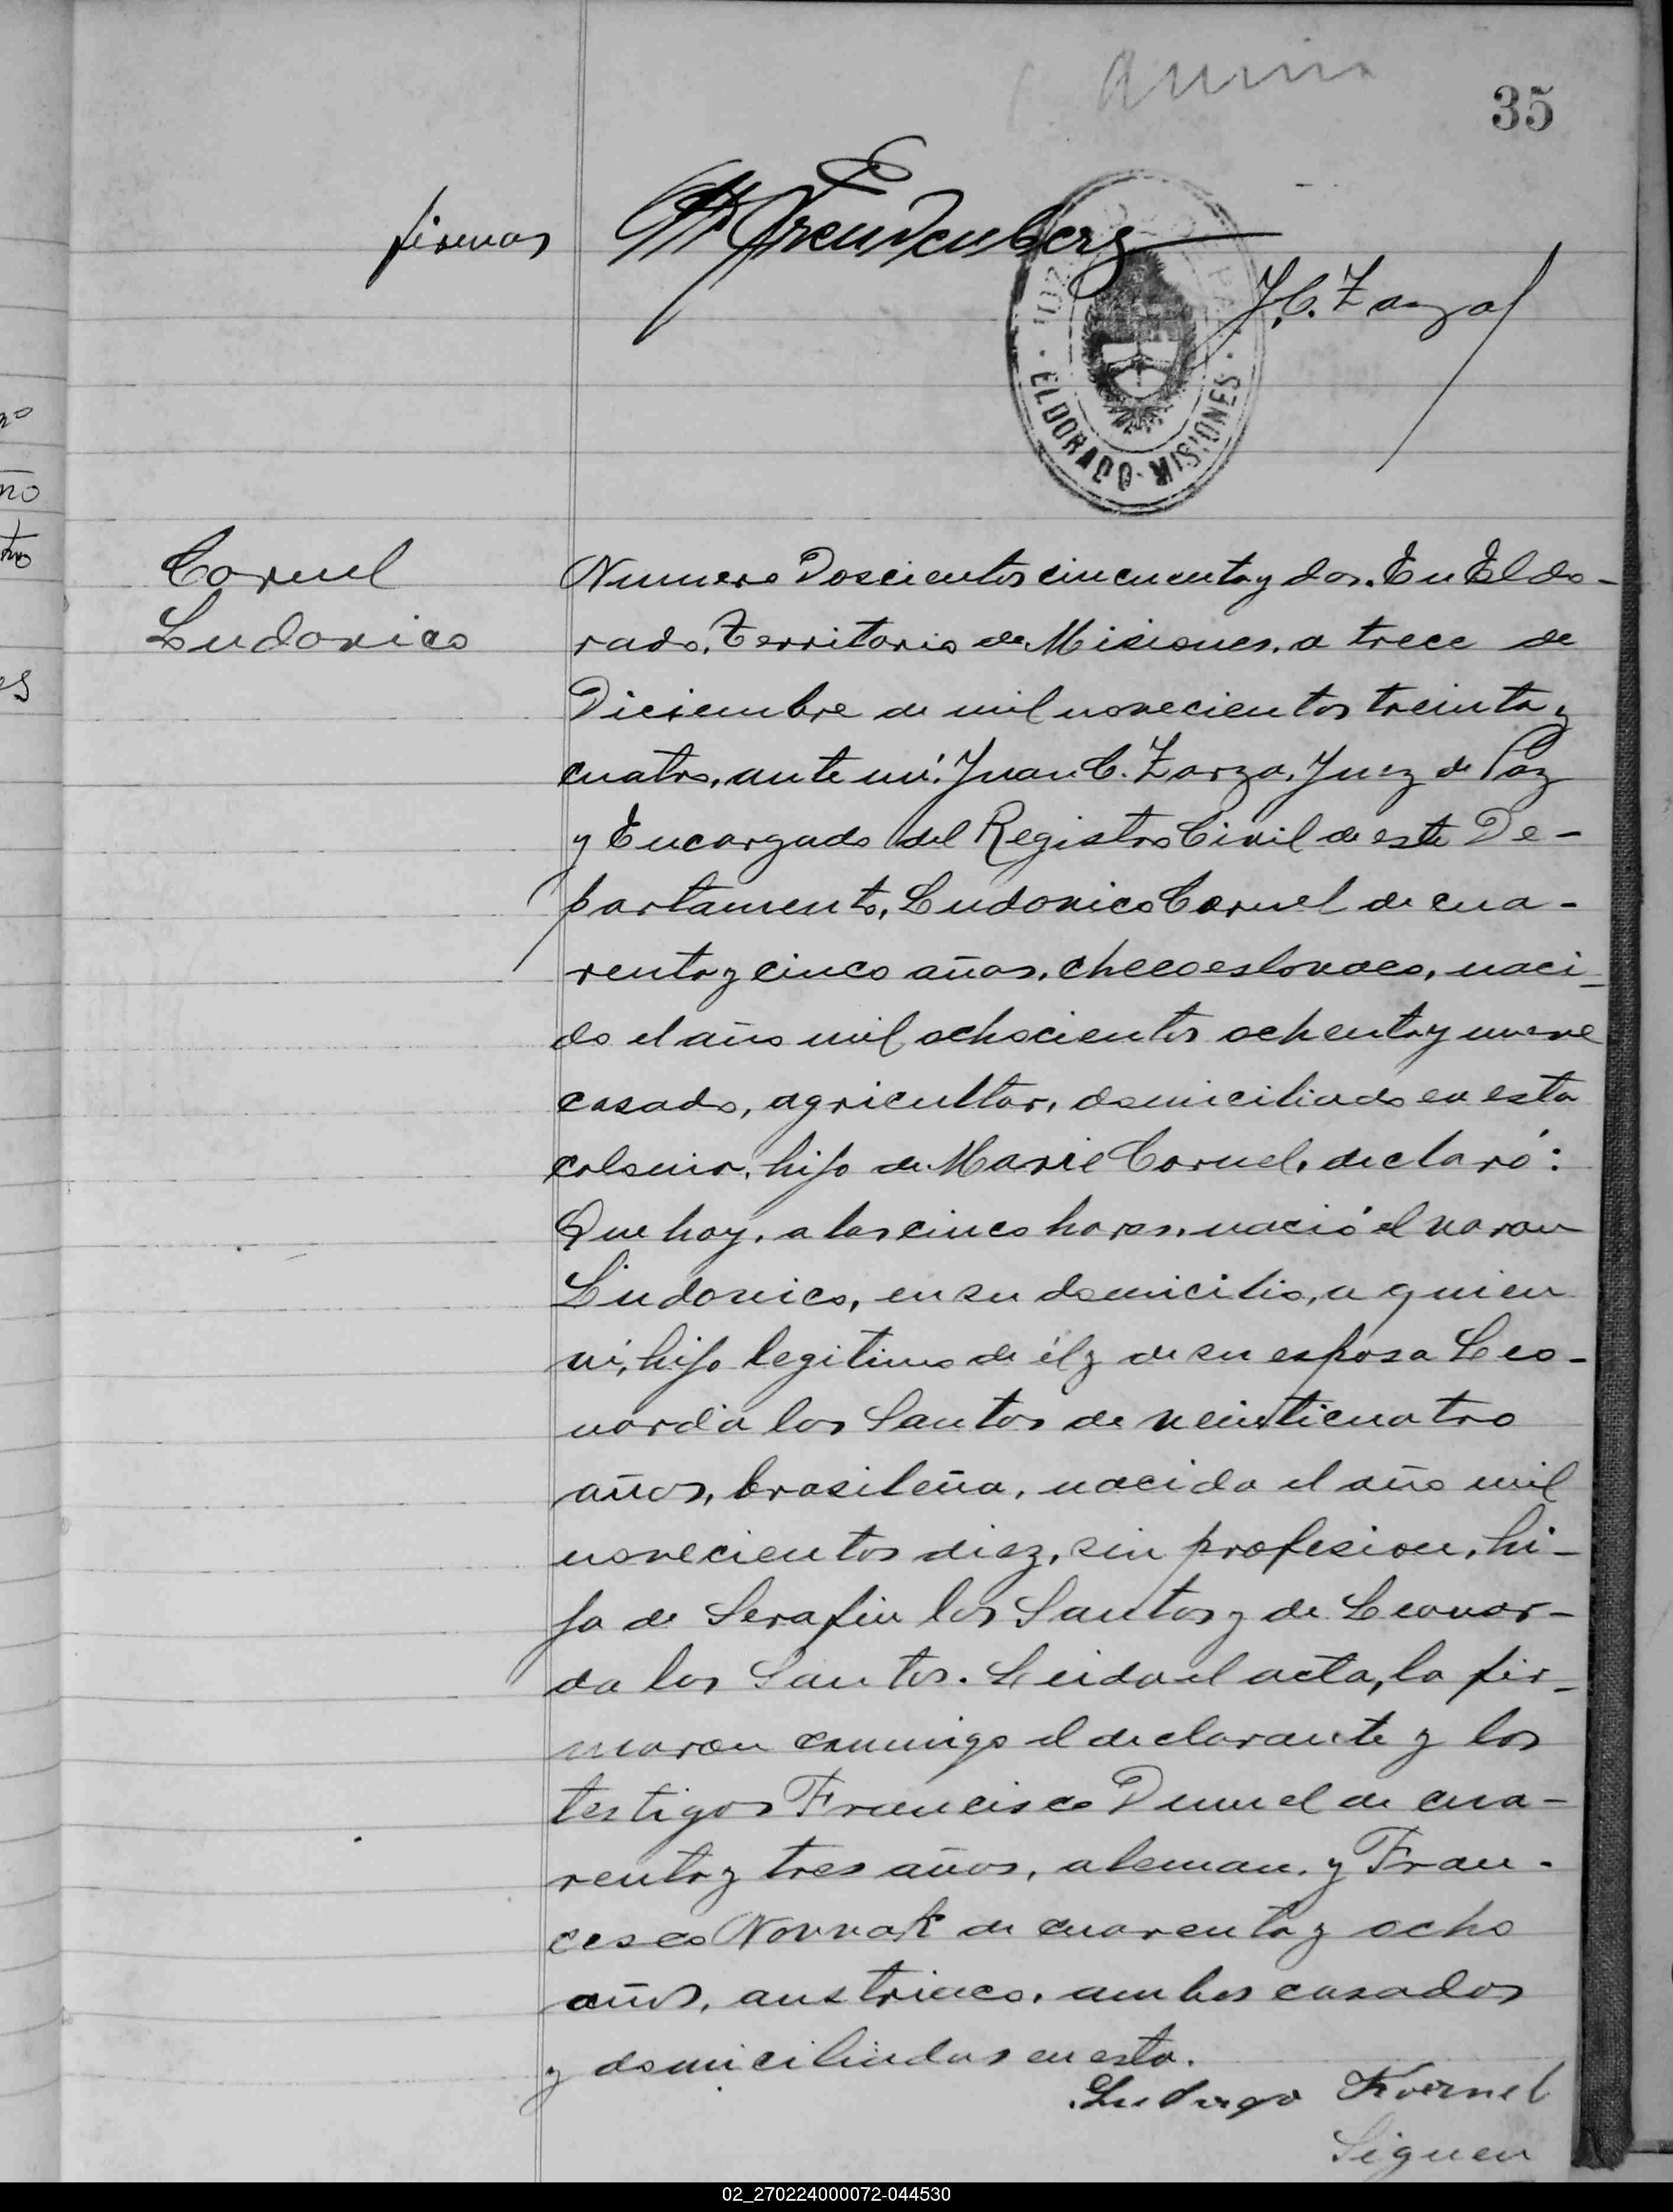 35
firmas
Freudenberg
J.C. Zarza
ELDORADO · MISIONES
Coruel
Ludovico
Numero Doscientos cincuenta y dos. En Eldo-
rado, Territorio de Misiones, a trece de
Diciembre de mil novecientos treinta y
cuatro, ante mí, Juan C. Zarza, Juez de Paz
y Encargado del Registro Civil de este De-
partamento, Ludovico Coruel de cua-
renta y cinco años, checoeslovaco, naci-
do el año mil ochocientos ochenta y nueve
casado, agricultor, domiciliado en esta
colonia, hijo de Marie Coruel, declaró:
Que hoy, a las cinco horas, nació el varon
Ludovico, en su domicilio, a quien
ví, hijo legitimo de él y de su esposa Leo-
narda los Santos de veinticuatro
años, brasileña, nacida el año mil
novecientos diez, sin profesion, hi-
ja de Serafin los Santos y de Leonar-
da los Santos. Leida el acta, la fir-
maron conmigo el declarante y los
testigos Francisco Dumel de cua-
renta y tres años, aleman, y Fran-
cisco Novvak de cuarenta y ocho
años, austriaco, ambos casados
y domiciliados en esta.
Kornel
Siguen
02_270224000072-044530